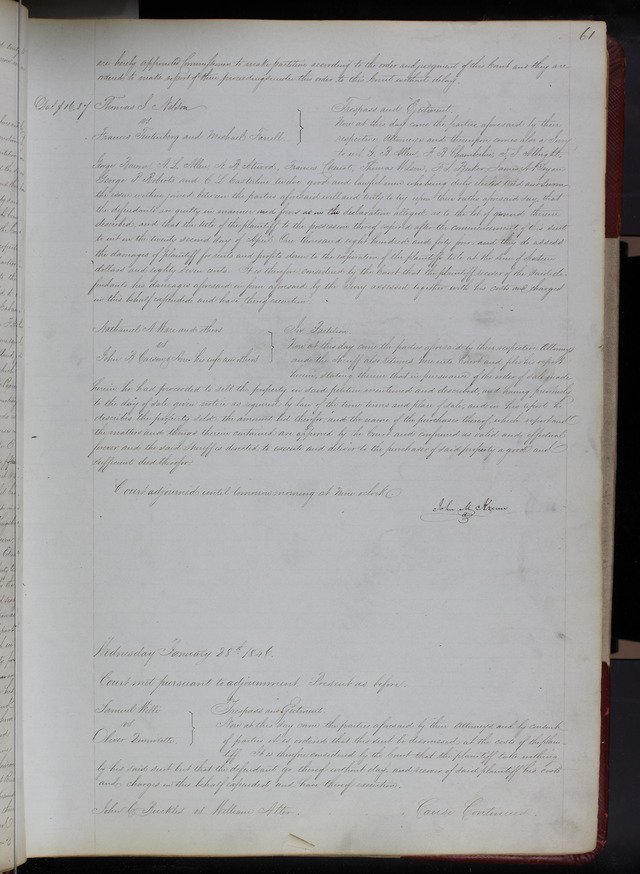 61
are hereby appointed Commissioners to make partition according to the order and judgment of this Court and they are
ordered to make report of their proceedings under this order to this Court without delay
Thomas S. Nelson
vs
Francis and Michael Farrell
Trespass and Ejectment,
Now at this day come the parties aforesaid by their
respective Attorneys and thereupon comes also a Jury
to wit G. B. Allen, F. B. Chamberlain, Albright,
Brown, A L. Allen, A. H. Atwood, Francis Thomas Wilson,
George P. Roberts and C L twelve good and lawful men who being duly elected tried and sworn
the issue within joined between the parties aforesaid well and truly to try upon their oaths aforesaid say, that
the defendants are guilty in manner and form as in the declaration alleged as to the lot of ground therein
described, and that the title of the plaintiff to the possession thereof expired after the commencement of this suit
to wit on the twenty second day of April One thousand eight hundred and forty five, and they do assess
the damages of plaintiff for rents and profits down to the expiration of the plaintiffs title at the sum of sixteen
dollars and eighty seven cents. It is therefore considered by the Court that the plaintiff recover of the said de-
fendants his damages aforesaid in form aforesaid by the Jury assessed together with his costs and charges
in this behalf expended, and have thereof execution
Nathaniel A Ware and others
vs
John D his wife and others
In Partition
Now at this day come the parties aforesaid by their respective Attorneys
and the Sheriff also returns here into Court and files his report
herein, stating therein that in pursuance of the order of sale made
herein he had proceeded to sell the property in said petition mentioned and described, and having previous
to the day of sale given notice as required by law of the time terms and place of sale, and in his report he
describes the property sold, the amount bid therefor, and the name of the purchaser thereof, which report and
the matters and things therein contained are approved by the Court and confirmed as valid and effectual
and the said Sheriff is directed to execute and deliver to the purchaser of said property a good and
sufficient deed therefor.
Court adjourned until tomorrow morning at nine oclock
John M. Krum
Wednesday January 28th 1846.
Court met pursuant to adjournment. Present as before.
Samuel Wells
vs
Oliver
Trespass and Ejectment
Now at this day came the parties aforesaid by their Attorneys and by consent
of parties it is ordered that this suit be dismissed, at the costs of the plain-
tiff. It is therefore considered by the Court that the plaintiff take nothing
by his said suit but that the defendant go thereof without day, and recover of said plaintiff his costs
and charges in this behalf expended and have thereof execution.
John C. vs William
Cause Continued.